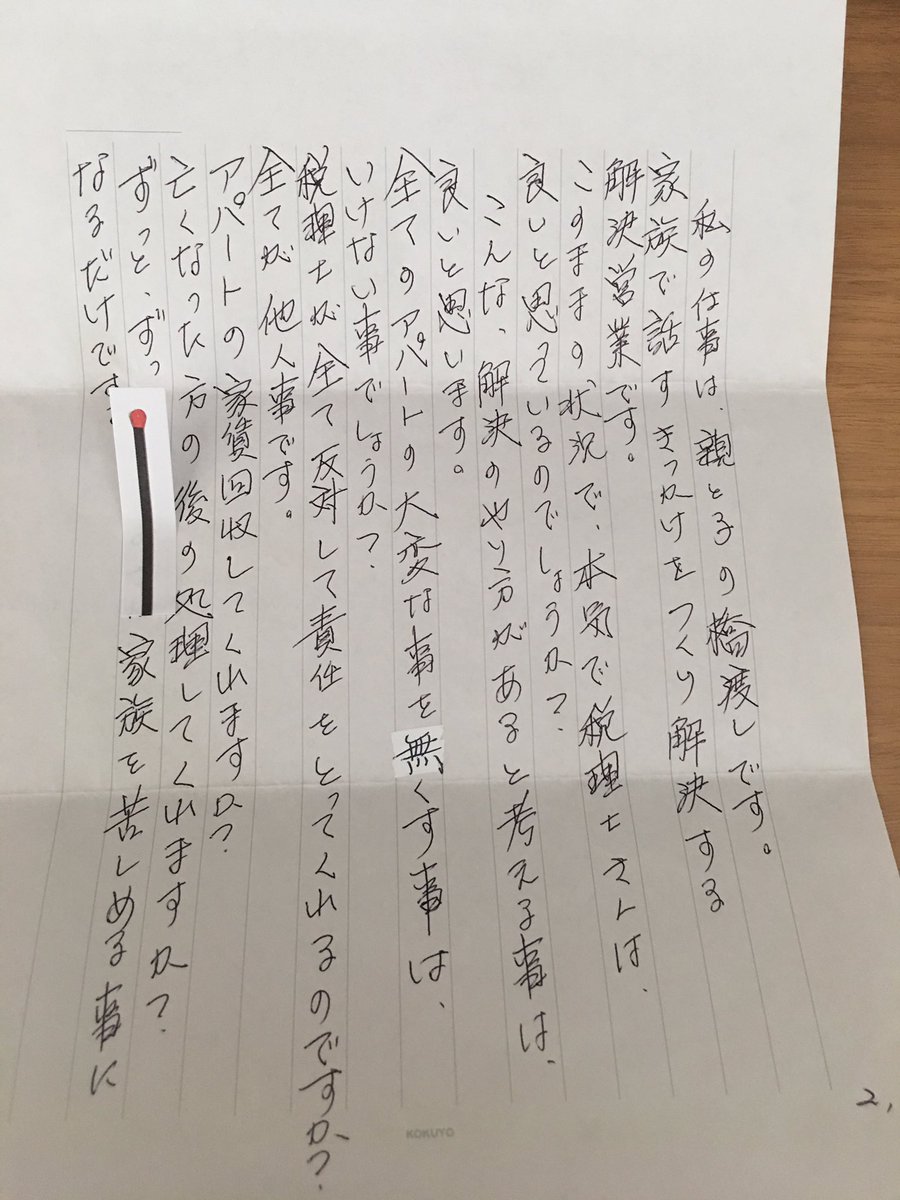 私の仕事は、親と子の橋渡しです。
家族で話すきっかけをつくり解決する
解決営業です。
このままの状況で、本気で税理士さんは、
良いと思っているのでしょうか?
こんな、解決のやり方があると考える事は、
良いと思います。
全てのアパートの大変な事を無くす事は、
いけない事でしょうか?
税理士が全て反対して責任をとってくれるのですか?
全てが他人事です。
アパートの家賃回収してくれますか?
亡くなった方の後の処理してくれますか?
ずっと、ずっ 家族を苦しめる事に
なるだけです。
2,
KOKUYO